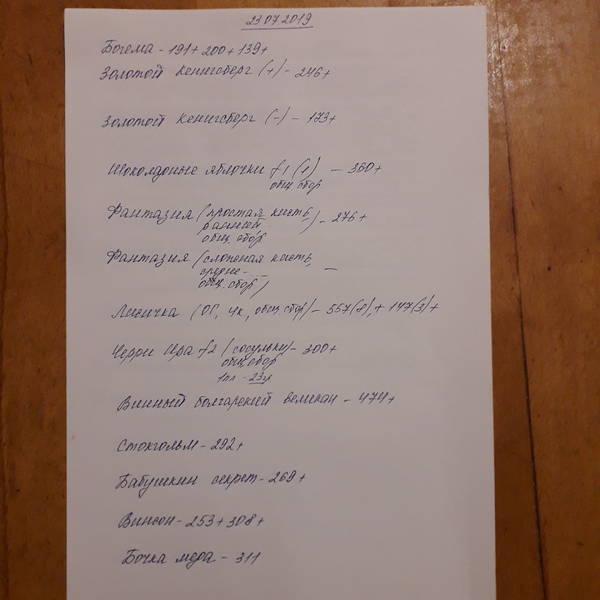 23.07.2019
Богема - 191+ 200+ 139+
Золотой Кенигсберг (+) - 246+
Золотой Кенигсберг (-) - 173+
Шоколадные яблочки f1 (1) - 360+
общ. сбор
Фантазия (простая кисть, - 276+
ранней
общ. сбор)
Фантазия (сложная кисть, -
средне-
общ. сбор)
Личичка (ОГ, Чк, общ. сбор) - 557(8),+ 147(3)+
Черри Ира f2 (сосульки) - 300+
общ. сбор
1пл - 23гр
Винный болгарский великан - 474+
Стокгольм - 292+
Бабушкин секрет - 269+
Винсон - 253+ 308+
Бочка меда - 311